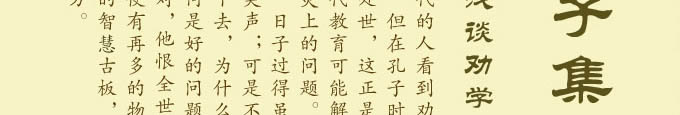 子集
浅谈劝学
代的人看到劝
但在孔子时
处世，这正是
代教育可能解
上的问题。
日子过得虽
笑声；可是不
下去，为什么
何是好的问题
对，他恨全世
有再多的物
的智慧古板，